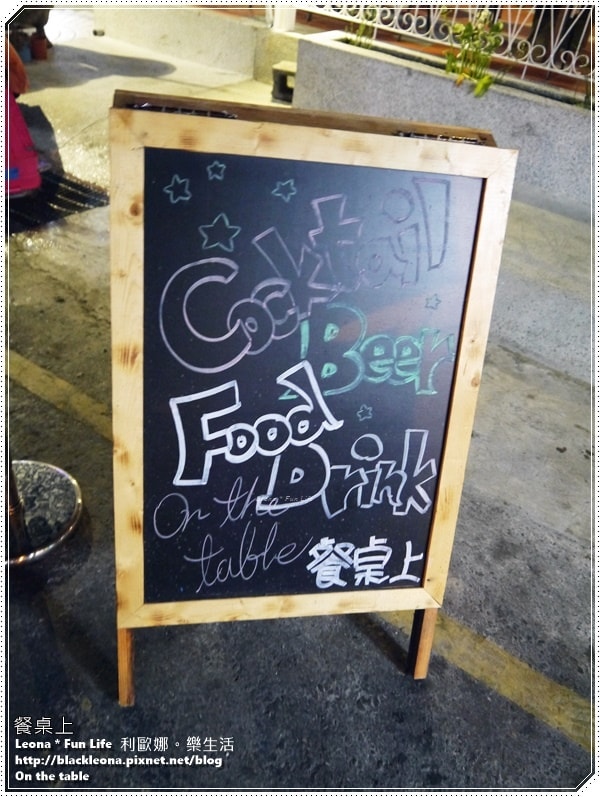 Cocktail
Beer
Food
Drink
On the
table 餐桌上
餐桌上
Leona * Fun Life 利歐娜。樂生活
http://blackleona.pixnet.net/blog
On the table